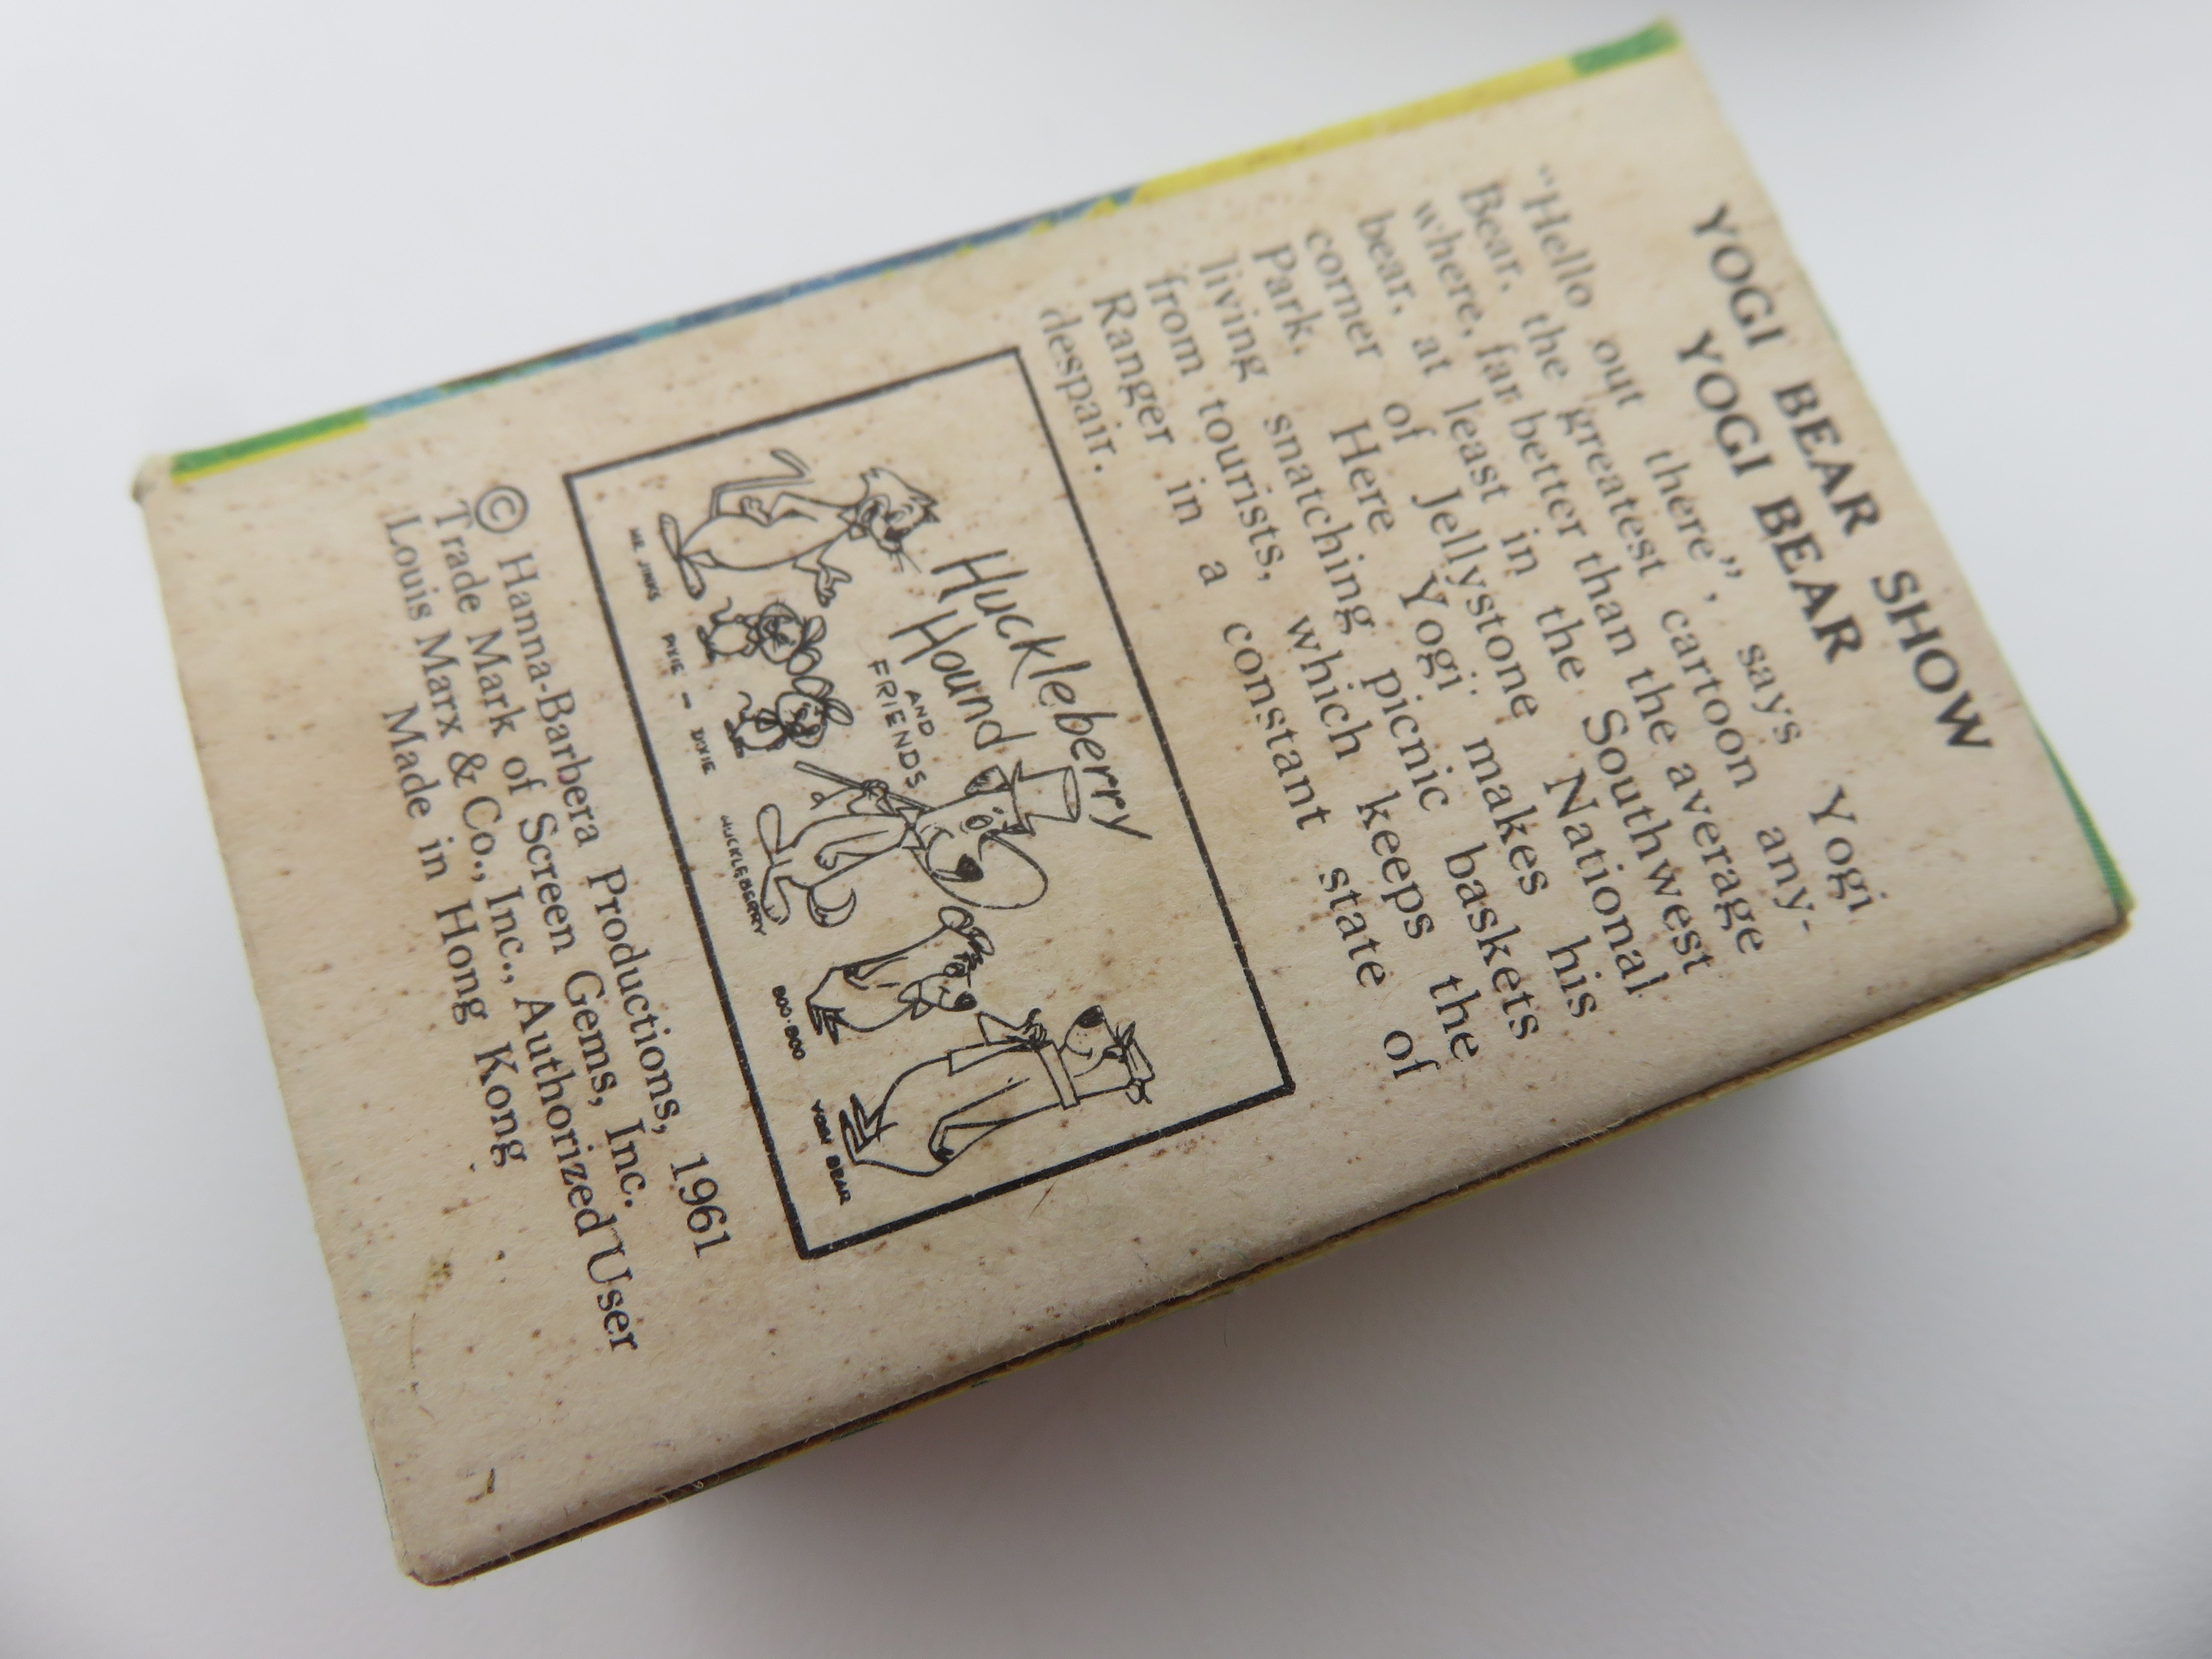 YOGI BEAR SHOW
YOGI BEAR
"Hello out there", says Yogi
Bear, the greatest cartoon any-
where, far better than the average
bear, at least in the Southwest
corner of Jellystone National
Park. Here Yogi makes his
living snatching picnic baskets
from tourists, which keeps the
Ranger in a constant state of
despair.
Huckleberry
Hound
AND
FRIENDS
MR. JINKS PIXIE - DIXIE HUCKLEBERRY BOO-BOO YOGI BEAR
© Hanna-Barbera Productions, 1961
Trade Mark of Screen Gems, Inc.
Louis Marx & Co., Inc., Authorized User
Made in Hong Kong